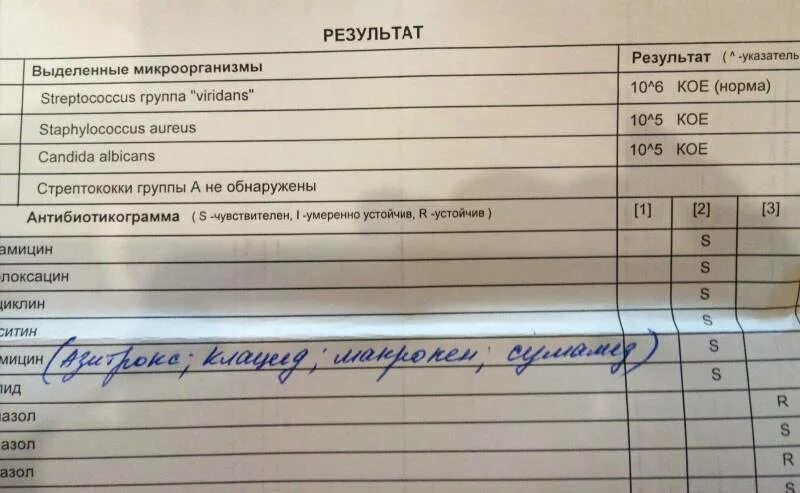 РЕЗУЛЬТАТ
Выделенные микроорганизмы Результат ( ^ -указатель
Streptococcus группа "viridans" 10^6 КОЕ (норма)
Staphylococcus aureus 10^5 КОЕ
Candida albicans 10^5 КОЕ
Стрептококки группы А не обнаружены
Антибиотикограмма ( S -чувствителен, I -умеренно устойчив, R -устойчив ) [1] [2] [3]
амицин S
локсацин S
циклин S
ситин S
мицин (Азитрокс; клацид; макропен; сумамед) S
лид S
азол R
азол S
азол R
S